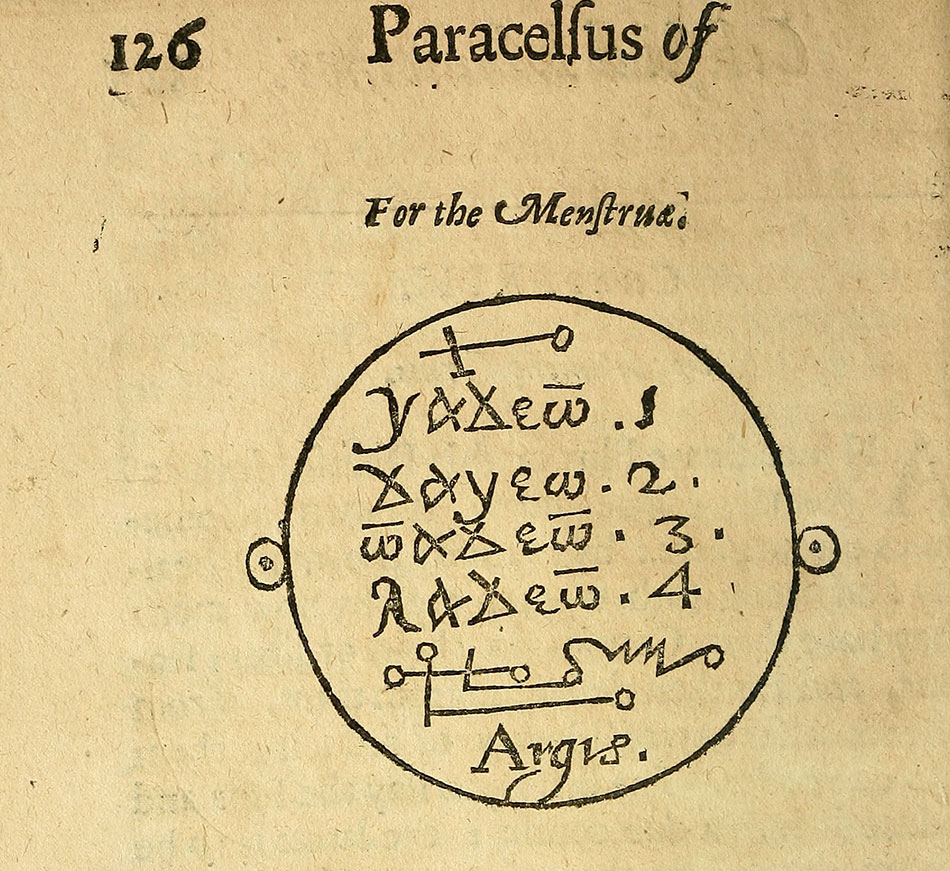 126 Paracelſus of
For the Menſtruæ.
γαΔεω̅ . 1
Δαγεω . 2 .
ω̅αΔεω̅ . 3 .
λαΔεω̅ . 4
Argis.